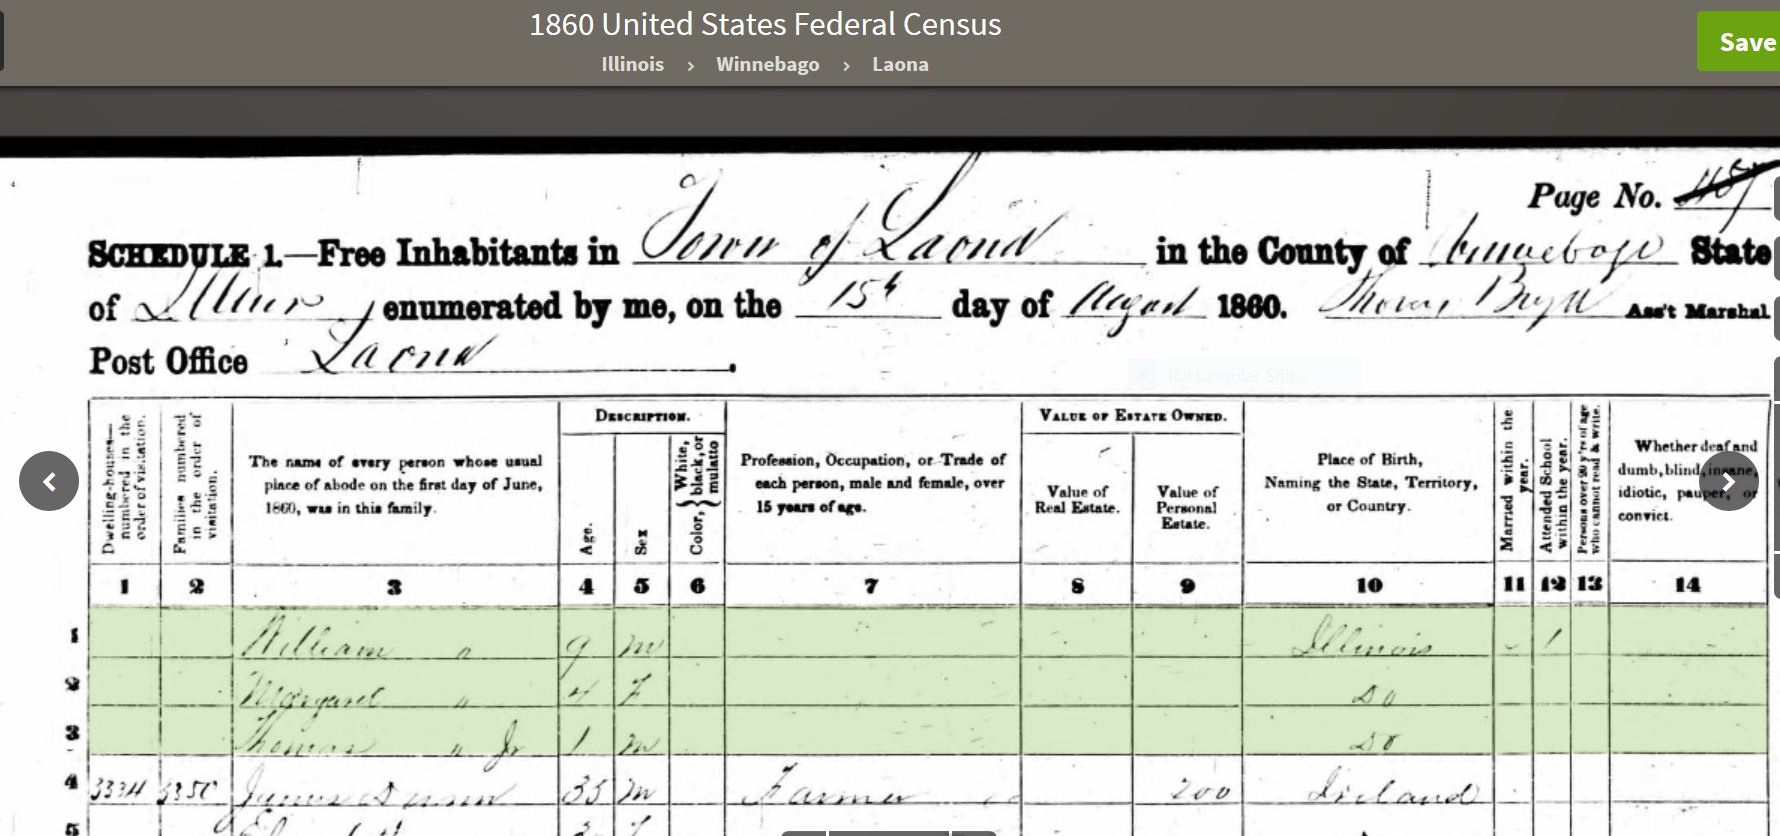 1860 United States Federal Census
Save
Illinois › Winnebago › Laona
Page No.
SCHEDULE 1.—Free Inhabitants in Town of Laona in the County of Winnebago State
of Illinois, enumerated by me, on the 15th day of August 1860. Thomas Ass't Marshal
Post Office Laona.
Rectangular Snip
Dwelling-houses—numbered in the order of visitation.
Families numbered in the order of visitation.
The name of every person whose usual place of abode on the first day of June, 1860, was in this family.
DESCRIPTION.
Age.
Sex
Color, { White, black, or mulatto
Profession, Occupation, or Trade of each person, male and female, over 15 years of age.
VALUE OF ESTATE OWNED.
Value of Real Estate.
Value of Personal Estate.
Place of Birth, Naming the State, Territory, or Country.
Married within the year.
Attended School within the year.
Persons over 20 y'rs of age who cannot read & write.
Whether deaf and dumb, blind, insane, idiotic, pauper, or convict.
1 2 3 4 5 6 7 8 9 10 11 12 13 14
1 William " 9 m Illinois /
2 Margaret " 4 F Do
3 Thomas " Jr 1 m Do
4 3334 James 35 m Farmer 200 Ireland
5